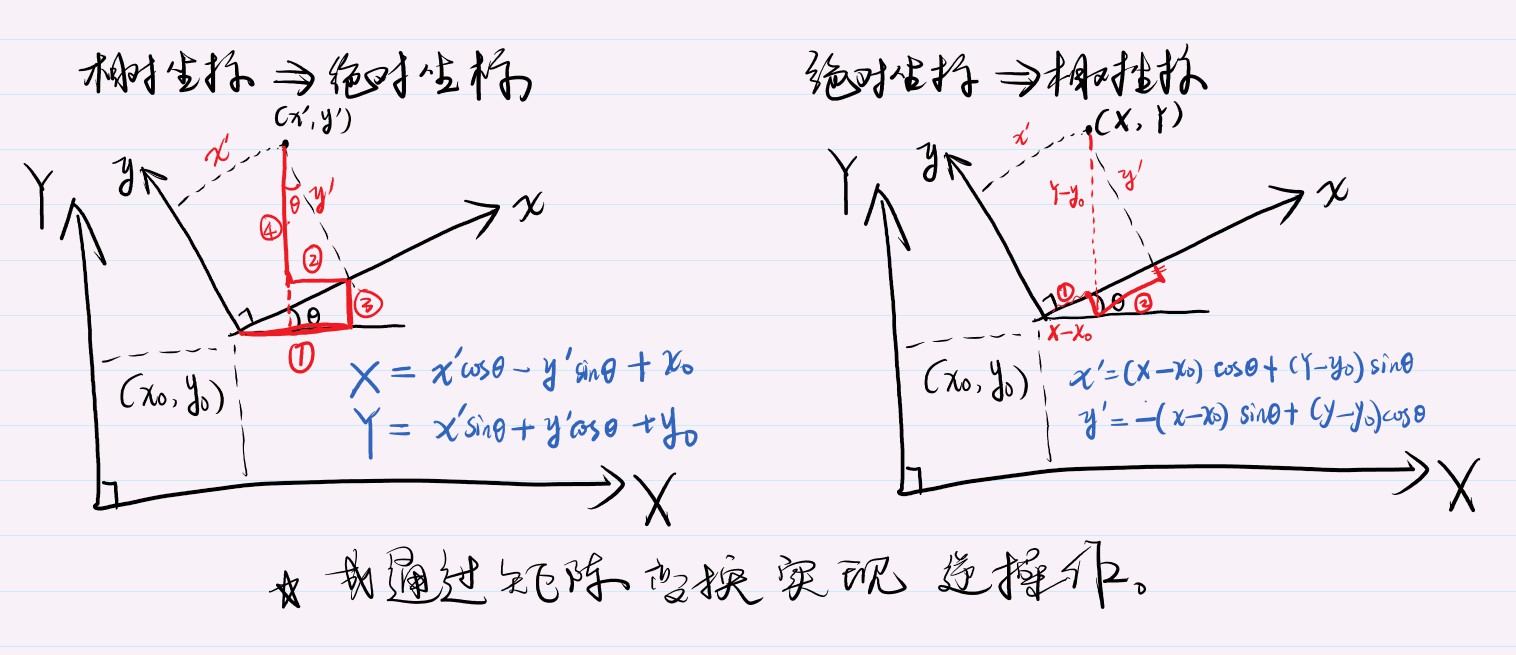 相对坐标 ⇒ 绝对坐标
(x', y')
x'
y
Y
θ
y'
④
x
②
③
θ
①
(x₀, y₀)
X = x'cosθ - y'sinθ + x₀
Y = x'sinθ + y'cosθ + y₀
X
绝对坐标 ⇒ 相对坐标
(X, Y)
x'
y
Y
Y-y₀
y'
x
①
θ
②
X-x₀
(x₀, y₀)
x' = (X-x₀) cosθ + (Y-y₀) sinθ
y' = -(x-x₀) sinθ + (y-y₀)cosθ
X
☆ 或通过矩阵变换实现逆操作。